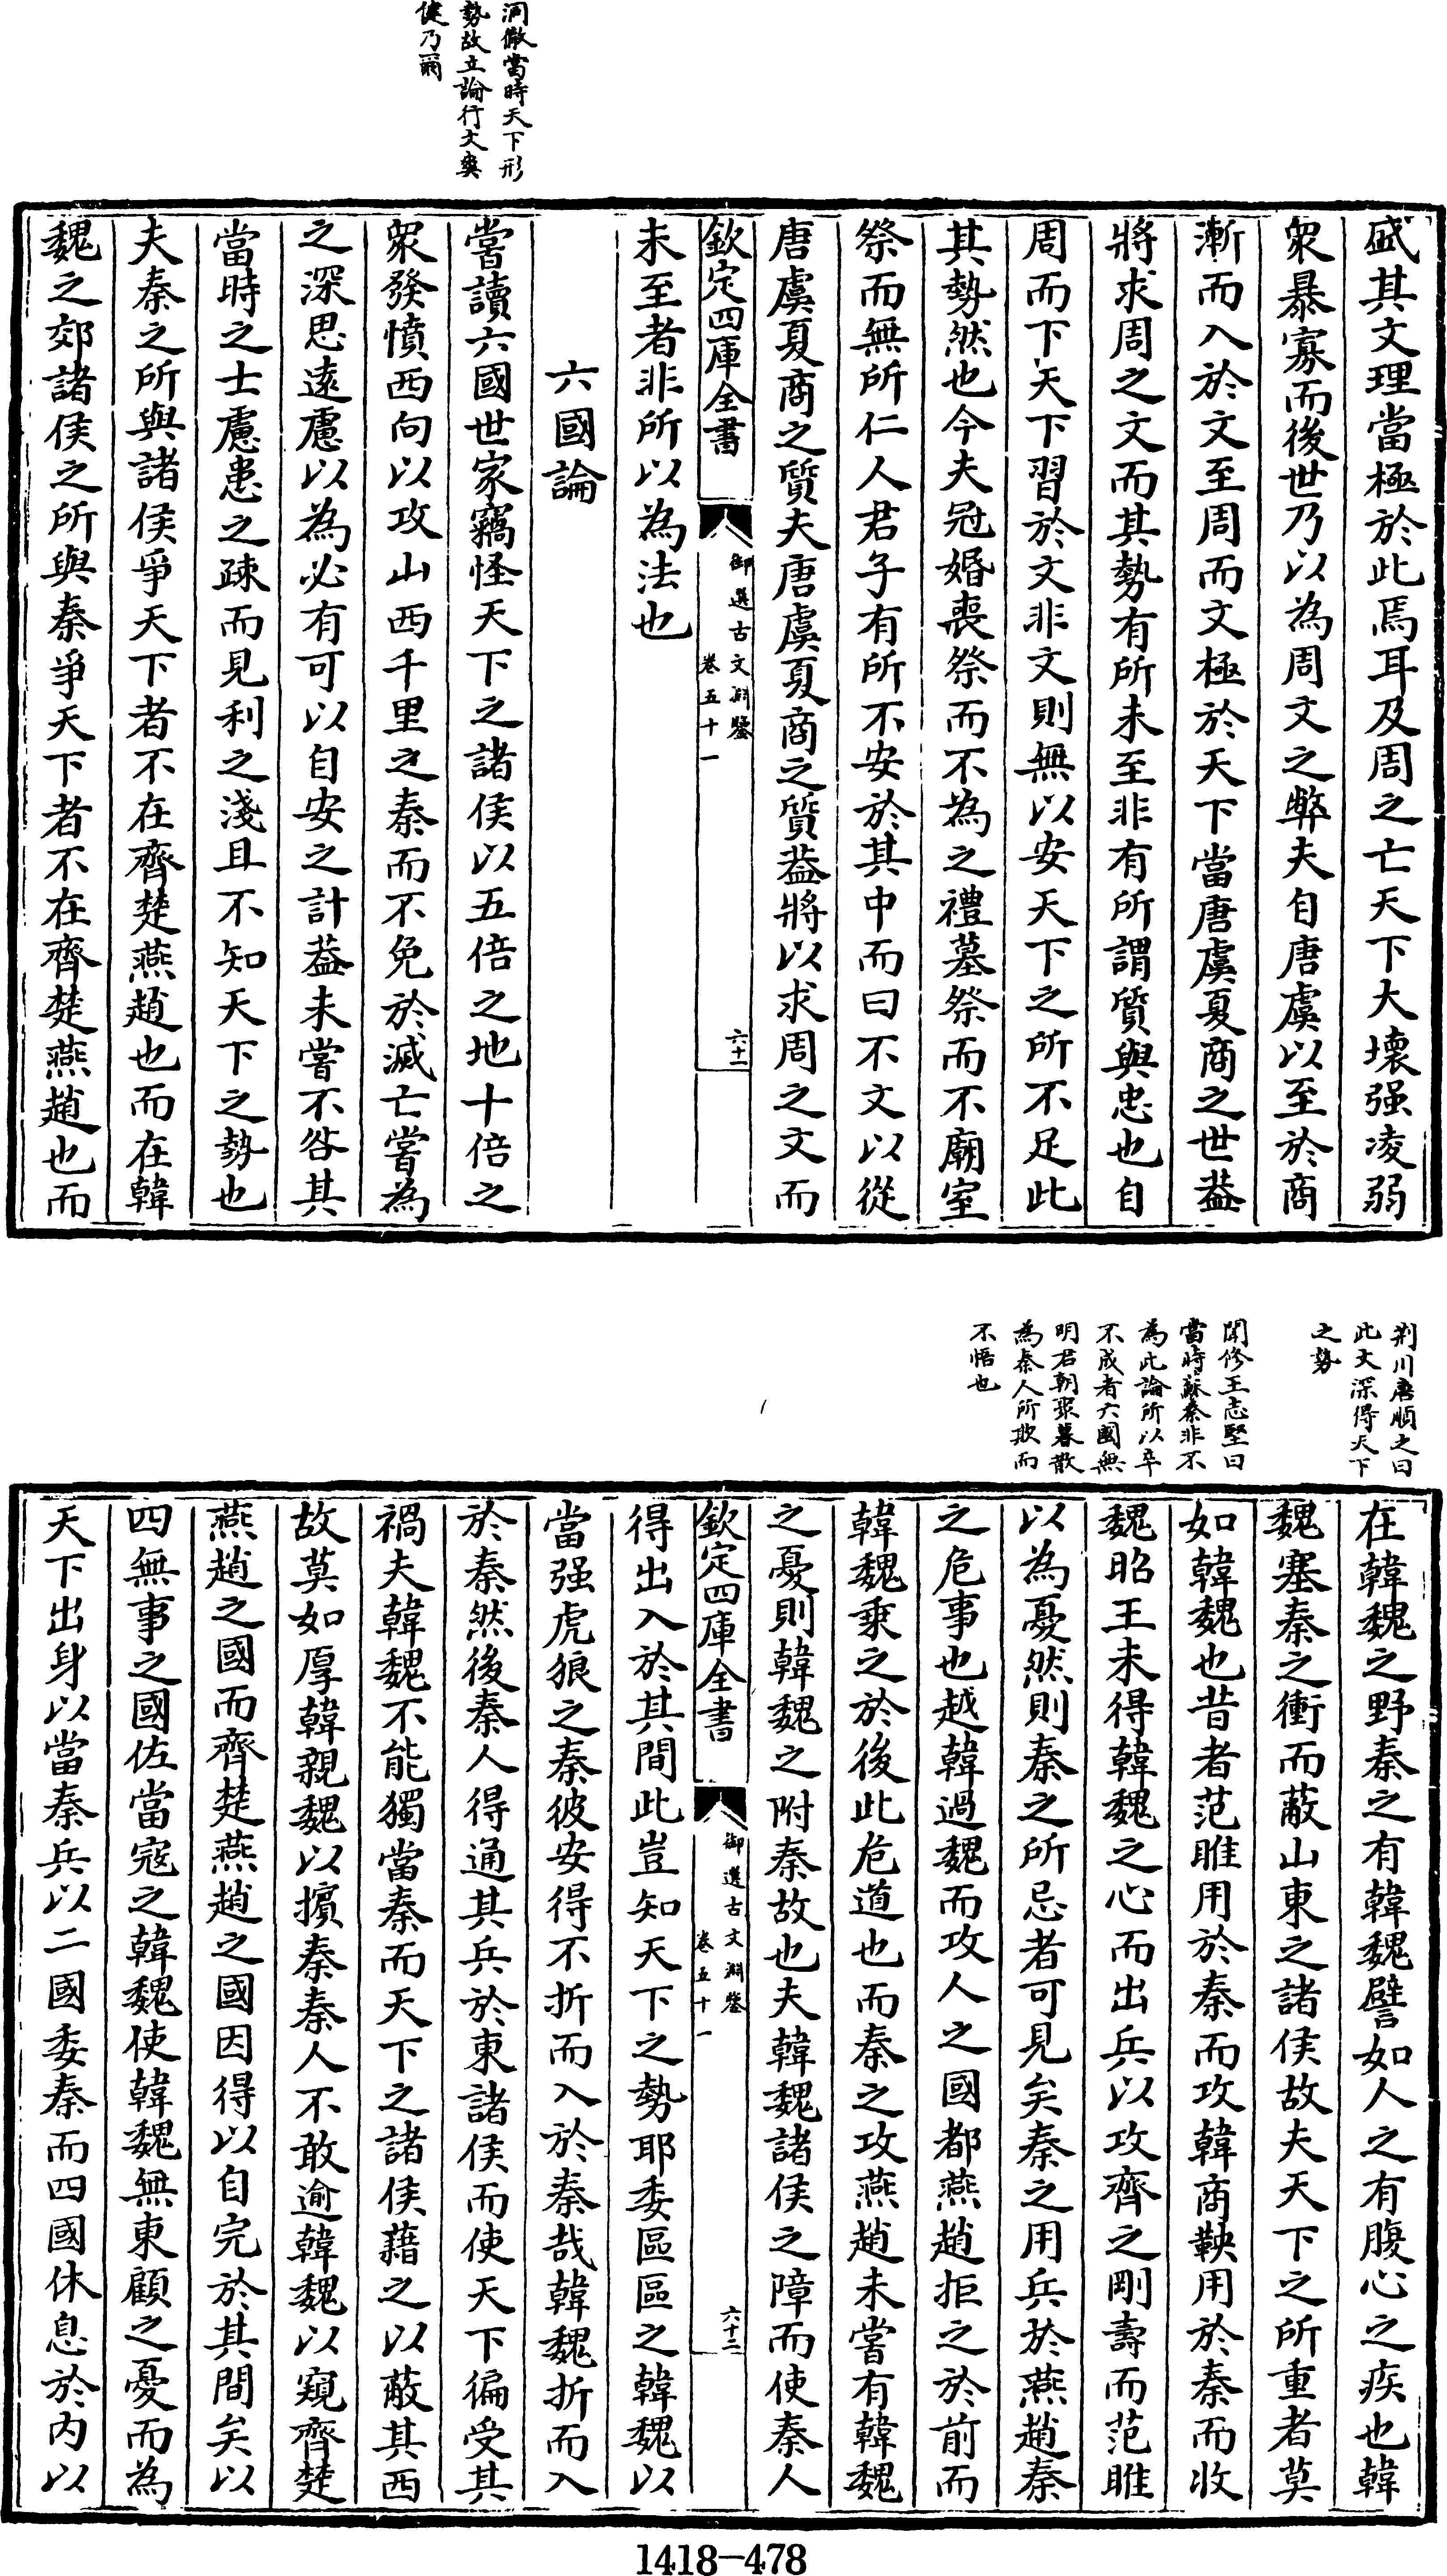 洞徹當時天下形
勢故立論行文爽
健乃爾
盛其文理當極於此焉耳及周之亡天下大壞强凌弱
衆暴寡而後世乃以為周文之弊夫自唐虞以至於商
漸而入於文至周而文極於天下當唐虞夏商之世葢
將求周之文而其勢有所未至非有所謂質與忠也自
周而下天下習於文非文則無以安天下之所不足此
其勢然也今夫冠婚喪祭而不為之禮墓祭而不廟室
祭而無所仁人君子有所不安於其中而曰不文以從
唐虞夏商之質夫唐虞夏商之質葢將以求周之文而
欽定四庫全書
御選古文淵鑒
卷五十一
六十一
未至者非所以為法也
六國論
嘗讀六國世家竊怪天下之諸侯以五倍之地十倍之
衆發憤西向以攻山西千里之秦而不免於滅亡嘗為
之深思遠慮以為必有可以自安之計葢未嘗不咎其
當時之士慮患之疎而見利之淺且不知天下之勢也
夫秦之所與諸侯爭天下者不在齊楚燕趙也而在韓
魏之郊諸侯之所與秦爭天下者不在齊楚燕趙也而
荆川唐順之曰
此文深得天下
之勢
聞修王志堅曰
當時蘇秦非不
為此論所以卒
不成者六國無
明君朝聚暮散
為秦人所欺而
不悟也
在韓魏之野秦之有韓魏譬如人之有腹心之疾也韓
魏塞秦之衝而蔽山東之諸侯故夫天下之所重者莫
如韓魏也昔者范睢用於秦而攻韓商鞅用於秦而收
魏昭王未得韓魏之心而出兵以攻齊之剛壽而范睢
以為憂然則秦之所忌者可見矣秦之用兵於燕趙秦
之危事也越韓過魏而攻人之國都燕趙拒之於前而
韓魏乗之於後此危道也而秦之攻燕趙未嘗有韓魏
之憂則韓魏之附秦故也夫韓魏諸侯之障而使秦人
欽定四庫全書
御選古文淵鑒
卷五十一
六十二
得出入於其間此豈知天下之勢耶委區區之韓魏以
當强虎狼之秦彼安得不折而入於秦哉韓魏折而入
於秦然後秦人得通其兵於東諸侯而使天下徧受其
禍夫韓魏不能獨當秦而天下之諸侯藉之以蔽其西
故莫如厚韓親魏以擯秦秦人不敢逾韓魏以窺齊楚
燕趙之國而齊楚燕趙之國因得以自完於其間矣以
四無事之國佐當寇之韓魏使韓魏無東顧之憂而為
天下出身以當秦兵以二國委秦而四國休息於内以
1418-478